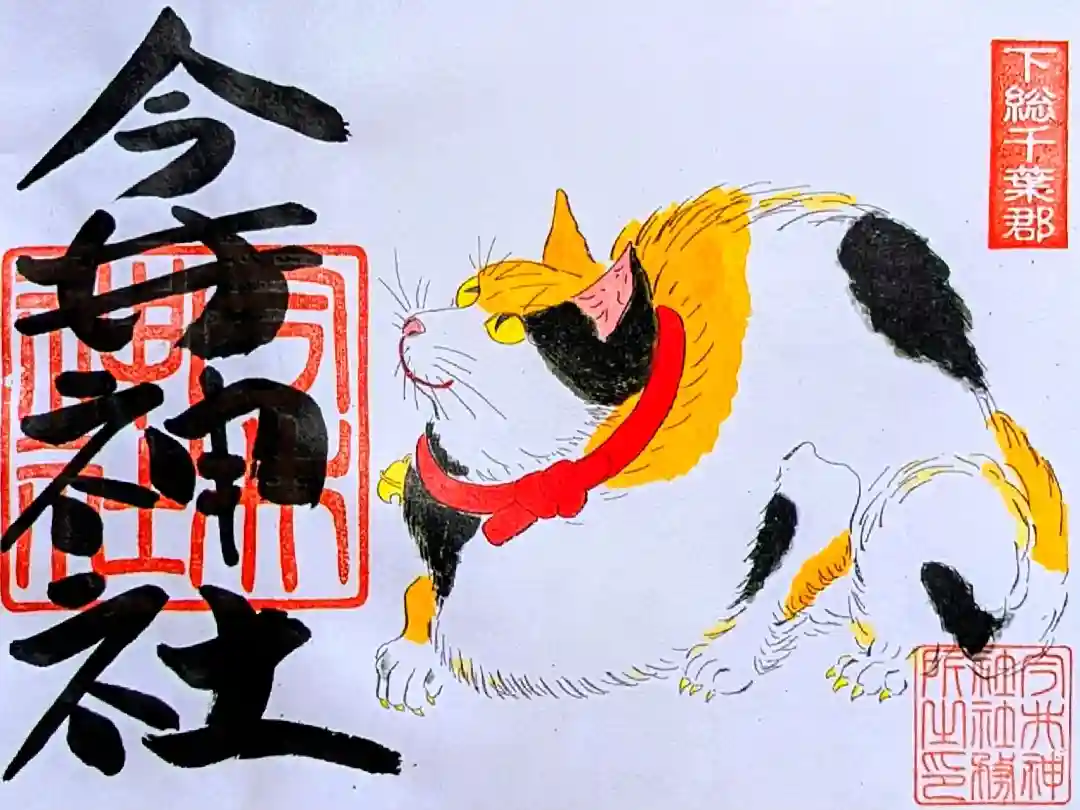 下総千葉郡
神社
今木神社
今木神社社務所之印